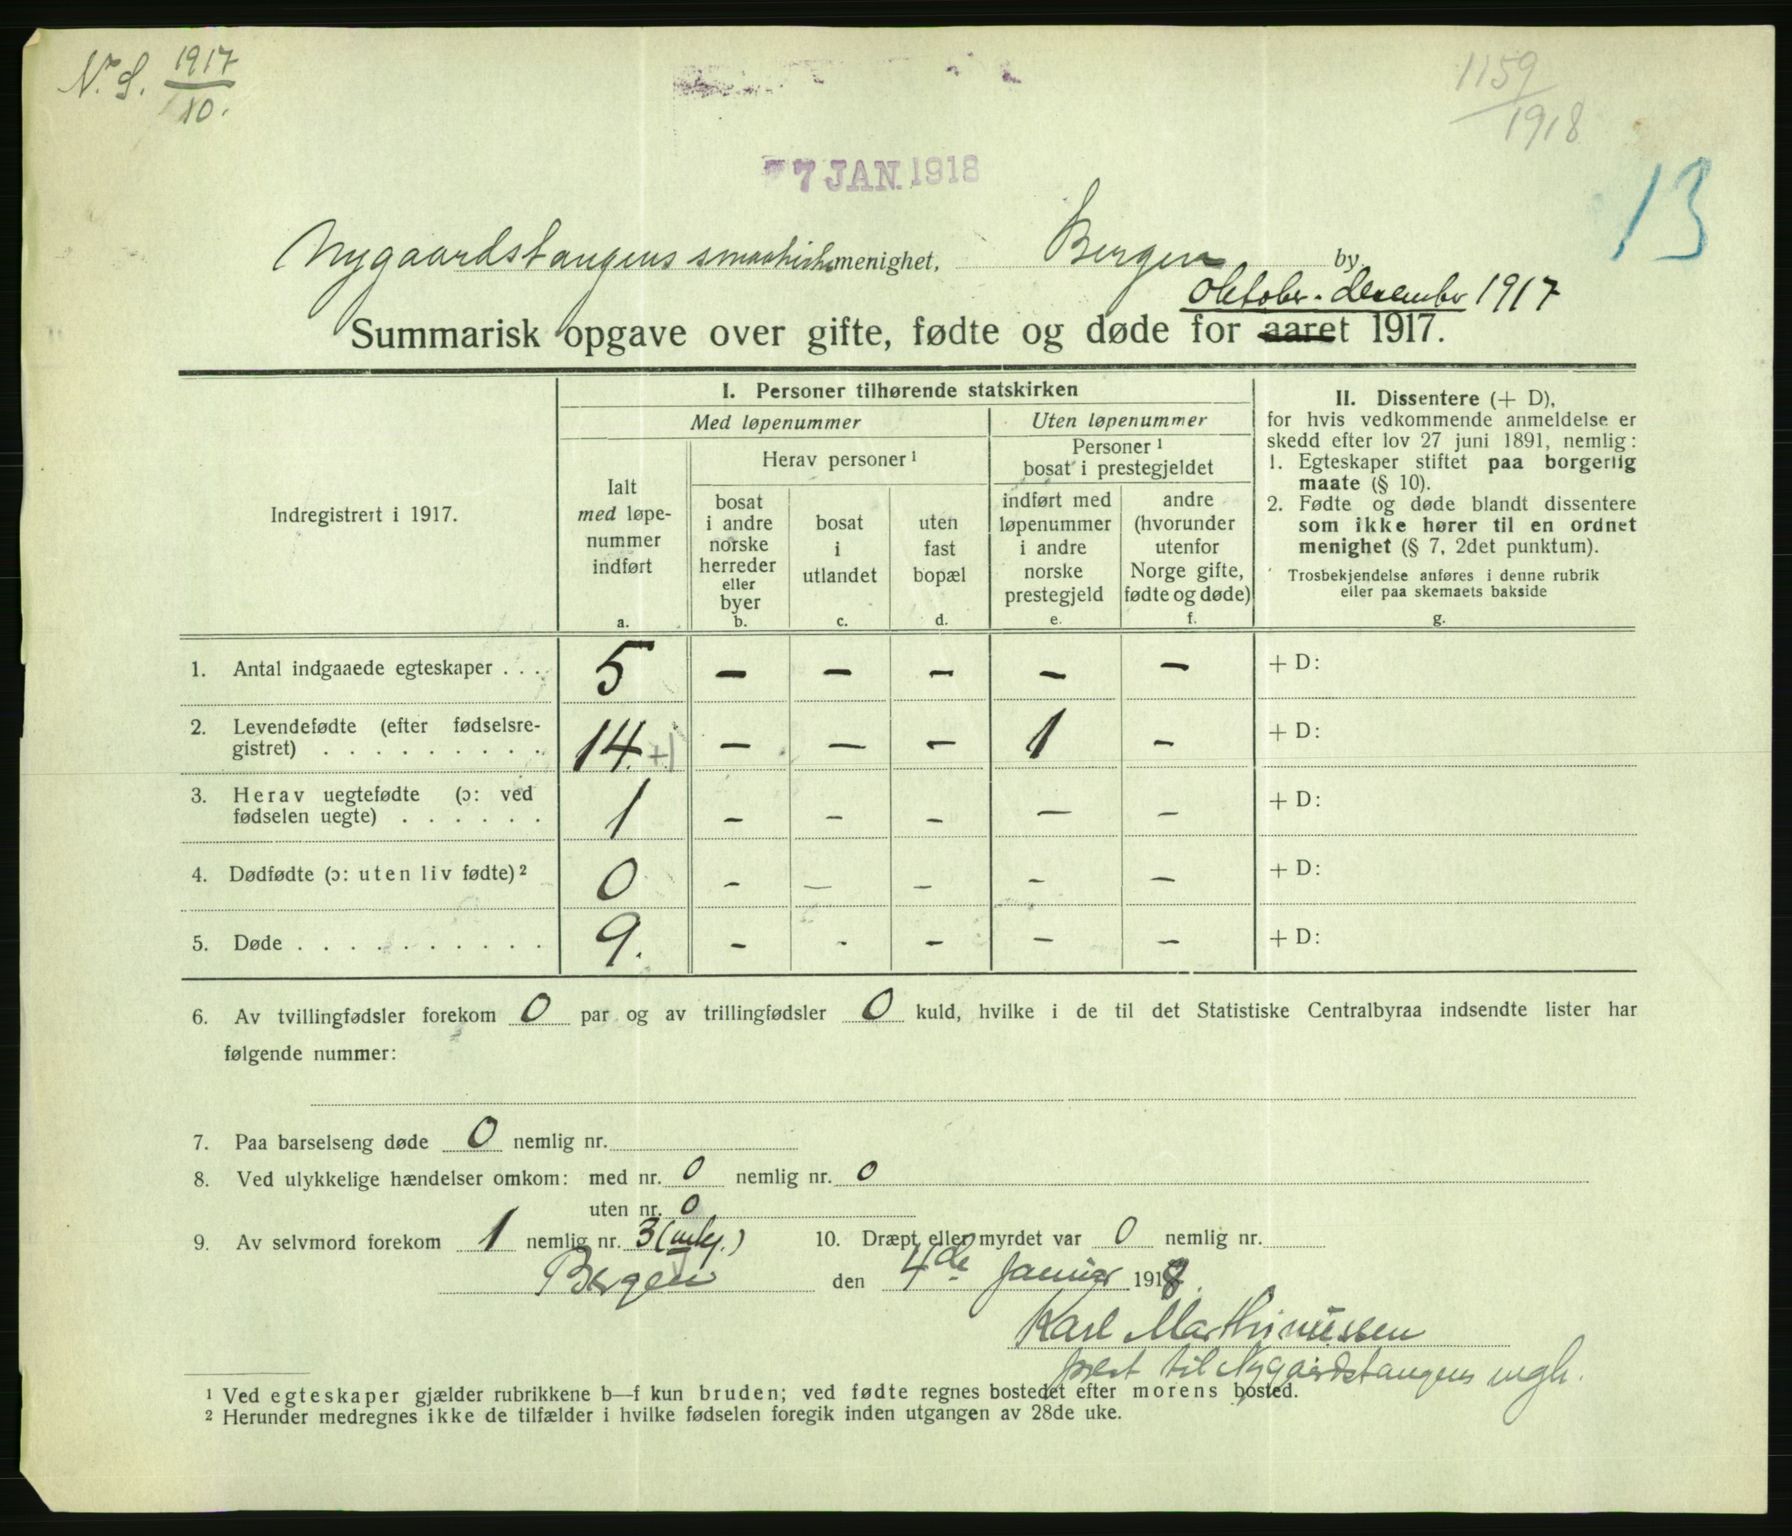 N. S. 1917
10.
1159
1918
7 JAN. 1918
13
Nygaardstangens smaakirke menighet, Bergen by.
Oktober - desember 1917
Summarisk opgave over gifte, fødte og døde for aaret 1917.
Indregistrert i 1917.
I. Personer tilhørende statskirken
Med løpenummer
Uten løpenummer
Ialt
med løpe-
nummer
indført
a.
Herav personer ¹
bosat
i andre
norske
herreder
eller
byer
b.
bosat
i
utlandet
c.
uten
fast
bopæl
d.
Personer ¹
bosat i prestegjeldet
indført med
løpenummer
i andre
norske
prestegjeld
e.
andre
(hvorunder
utenfor
Norge gifte,
fødte og døde)
f.
II. Dissentere (+ D),
for hvis vedkommende anmeldelse er
skedd efter lov 27 juni 1891, nemlig:
1. Egteskaper stiftet paa borgerlig
maate (§ 10).
2. Fødte og døde blandt dissentere
som ikke hører til en ordnet
menighet (§ 7, 2det punktum).
Trosbekjendelse anføres i denne rubrik
eller paa skemaets bakside
g.
1. Antal indgaaede egteskaper . . . 5 – – – – – + D:
2. Levendefødte (efter fødselsre-
gistret) . . . . . . . . . 14. +1 – – – 1 – + D:
3. Herav uegtefødte (ɔ: ved
fødselen uegte) . . . . . . 1 – – – – – + D:
4. Dødfødte (ɔ: uten liv fødte) ² 0 – – – – – + D:
5. Døde . . . . . . . . . . 9. – - – – – + D:
6. Av tvillingfødsler forekom 0 par og av trillingfødsler 0 kuld, hvilke i de til det Statistiske Centralbyraa indsendte lister har
følgende nummer:
7. Paa barselseng døde 0 nemlig nr.
8. Ved ulykkelige hændelser omkom: med nr. 0 nemlig nr. 0
uten nr. 0
9. Av selvmord forekom 1 nemlig nr. 3 10. Dræpt eller myrdet var 0 nemlig nr.
Bergen den 4de Januar 1918.
Karl Marthinussen
prest til Nygaardstangens mgh.
¹ Ved egteskaper gjælder rubrikkene b–f kun bruden; ved fødte regnes bostedet efter morens bosted.
² Herunder medregnes ikke de tilfælder i hvilke fødselen foregik inden utgangen av 28de uke.